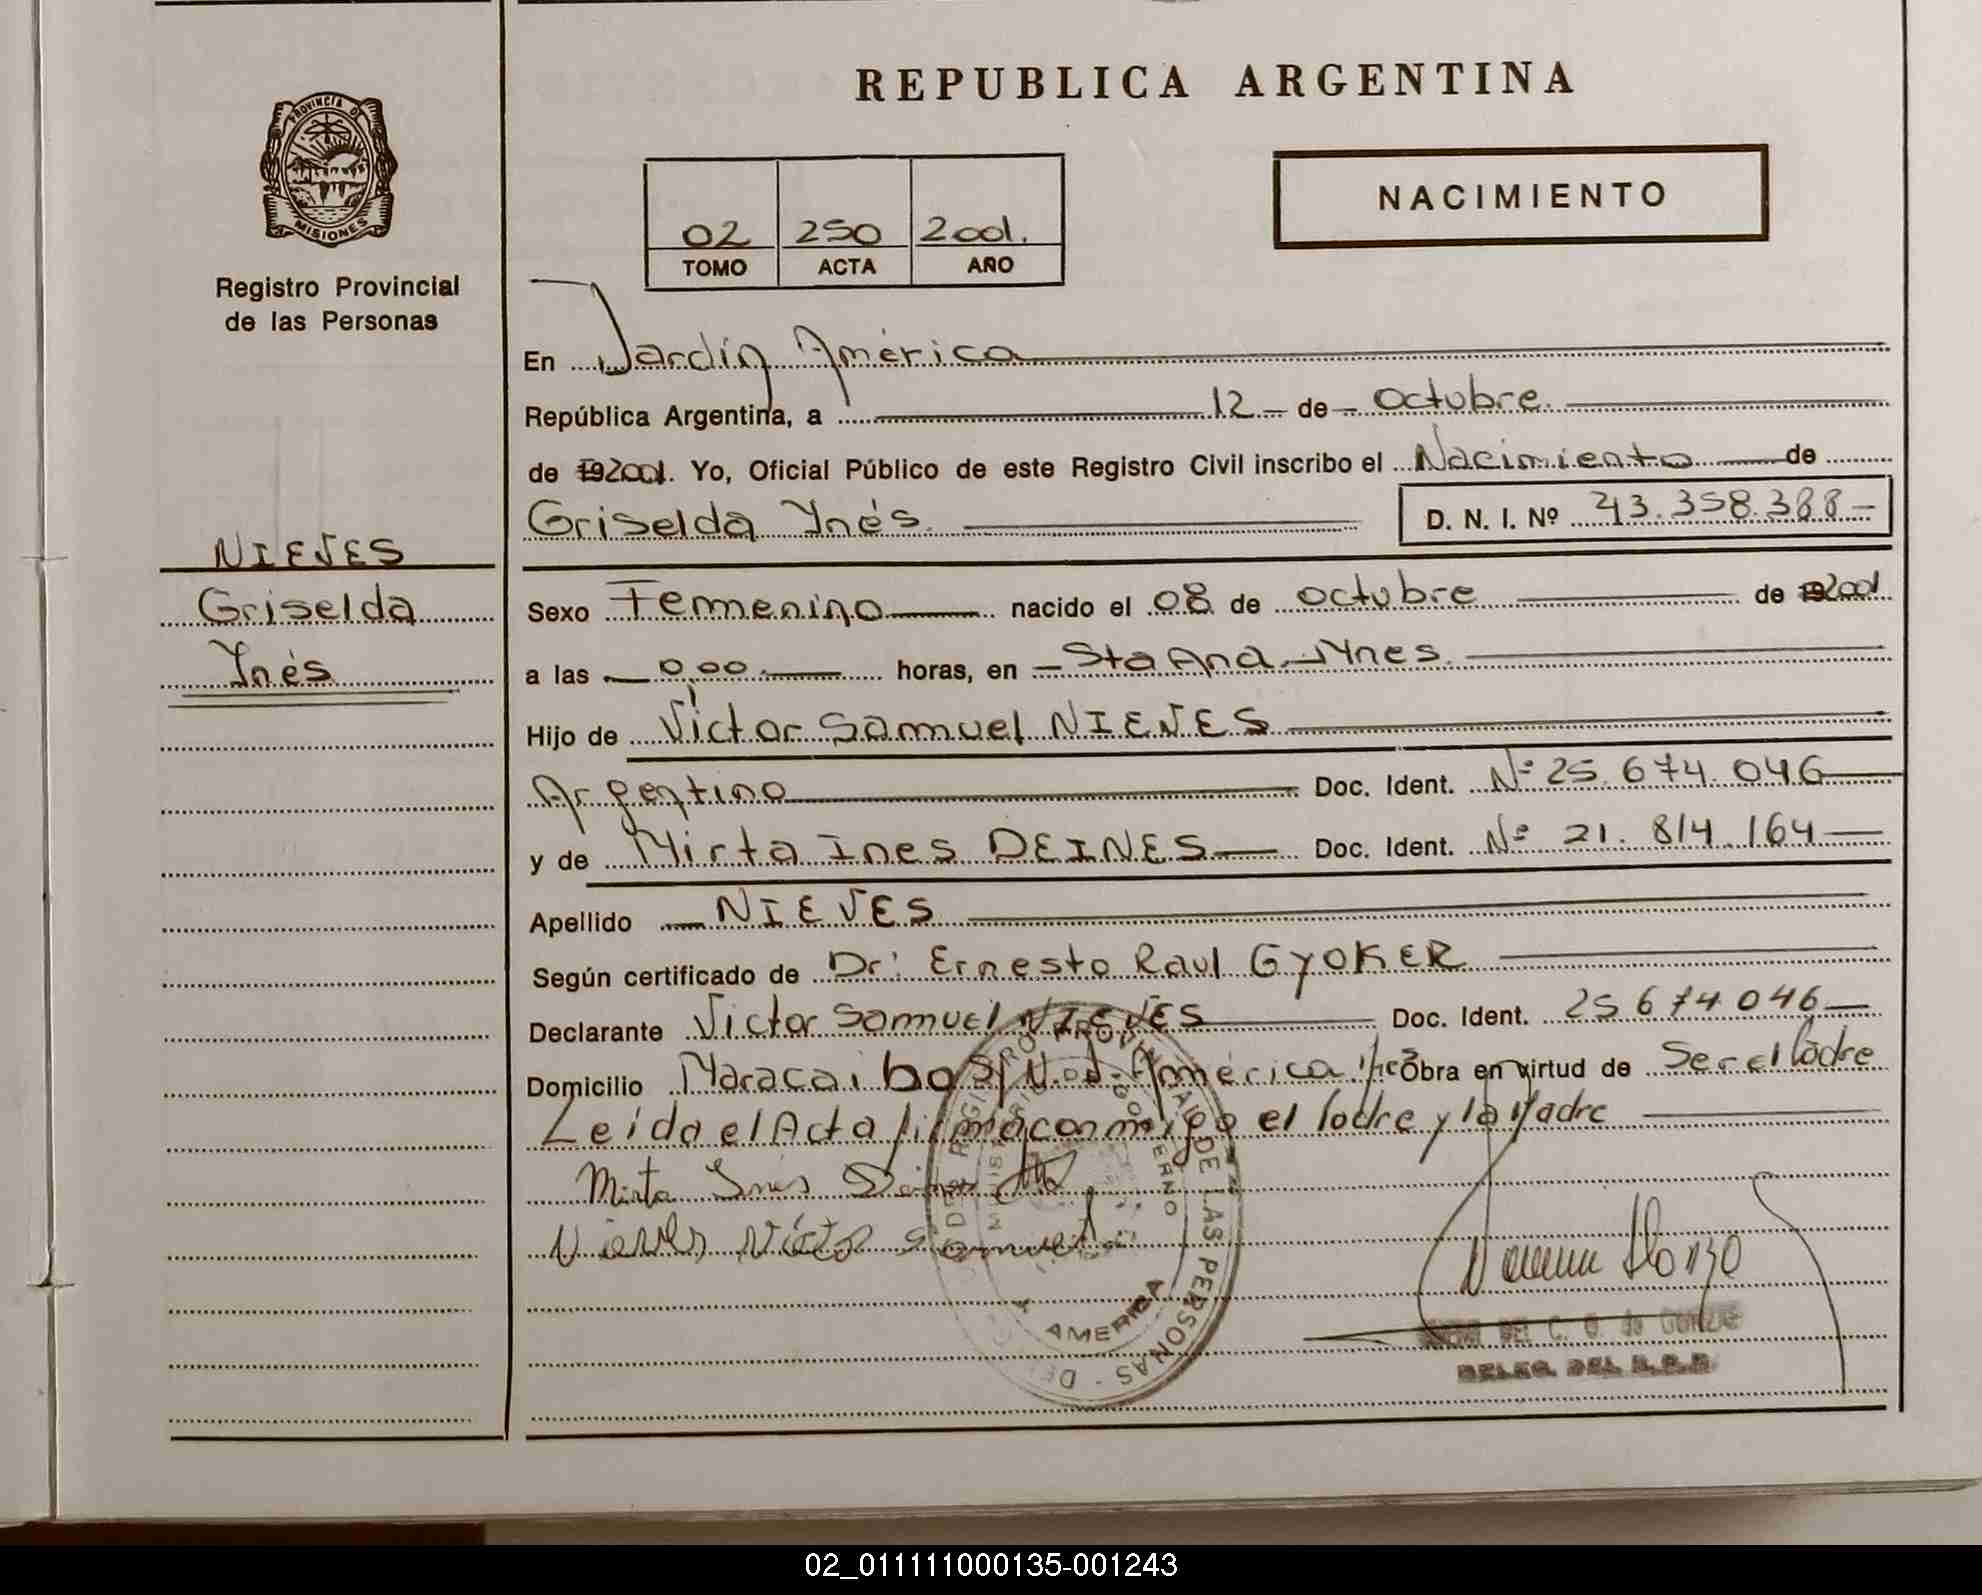 REPUBLICA ARGENTINA
PROVINCIA DE
MISIONES
Registro Provincial
de las Personas
NACIMIENTO
02 250 2001.
TOMO ACTA AÑO
En Jardín América
República Argentina, a 12 de Octubre.
de 192001. Yo, Oficial Público de este Registro Civil inscribo el Nacimiento de
Griselda Ynés. D. N. I. Nº 43.358.388
NIEVES
Griselda
Ynés
Sexo Femenino nacido el 08 de octubre de 192001
a las 0,00. horas, en Sta Ana Ynes.
Hijo de Victor Samuel NIEVES
Argentino Doc. Ident. Nº 25.674.046
y de Mirta Ines DEINES Doc. Ident. Nº 21.814.164
Apellido NIEVES
Según certificado de Dr: Ernesto Raul GYOKER
Declarante Victor Samuel NIEVES Doc. Ident. 25 674 046
Domicilio Maracaibo S/N. J. América Mnes Obra en virtud de Ser el Padre
Leída el Acta firma conmigo el Padre y la Madre
Mirta Inés
Nieves Víctor Samuel
REGISTRO PROVINCIAL DE LAS PERSONAS
GOBIERNO
AMERICA
DEL C. G. de
DELEG. DEL R.P.P.
02_011111000135-001243